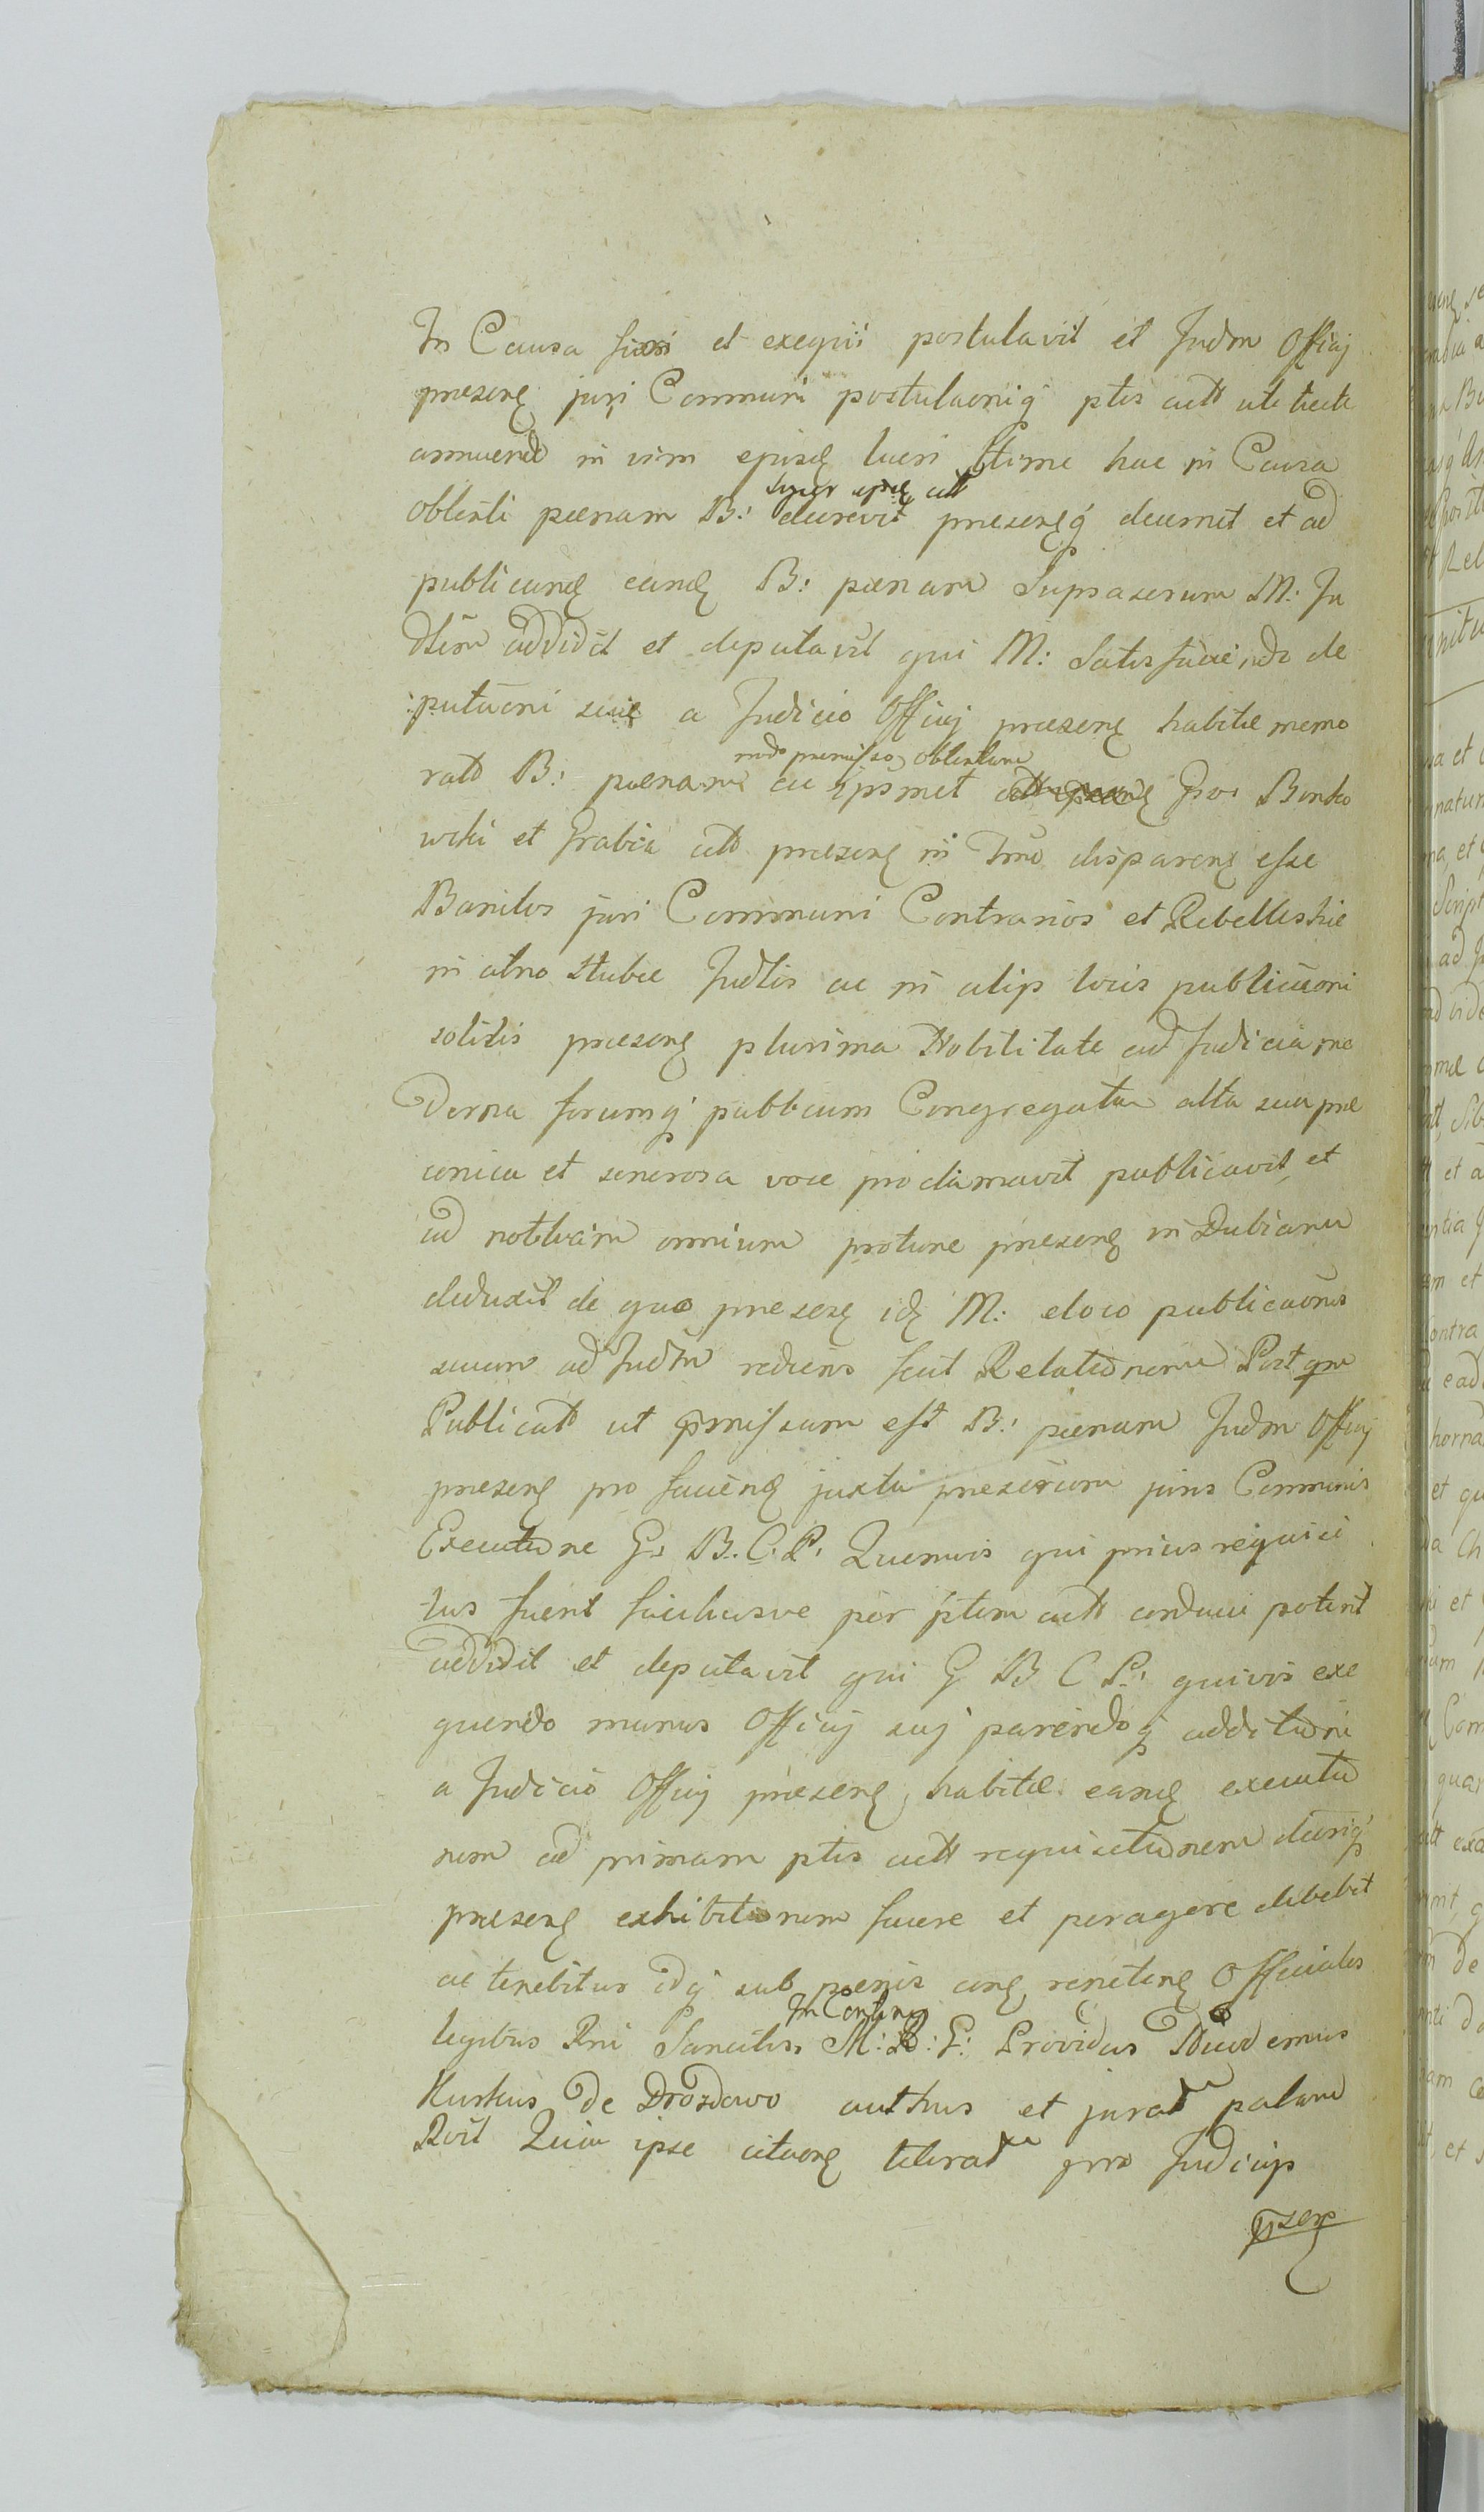 In Causa fieri et exequi postulavit et Judm Officij
præsens juri Communi postulaoniq ptis actt ute recte
annuend in vim ejusd lucri ttime hac in Causa
super ipso citt
obtenti pœnam B: decrevit præsensq decernit et ad
publicand eand B: pœnam suprascrum M: Ju
dtem addidit et deputavit qui M: Satisfaciendo de
putaoni suæ a Judicio Officij præsens habitæ memo
modo præmisso obtentam
ratt B: pœnam ac ipsmet Gsos Bonko
wski et Grabia citt præsens in Tmo disparens esse
Banitos juri Communi Contrarios et Rebelles hic
in atrio Stubæ Judlis ac in alijs locis publicaoni
solitis præsens plurima Nobilitate ad Judicia mo
derna forumq publicum Congregata alta sua præ
conica et sonorosa voce proclamavit publicavit, et
ad notitiam omnium protunc præsens in Dubiam
deduxit de quo præsens id M: eloco publicaonis
suum ad Judm rediens fecit Relationem Post qm
Publicatt ut præmissum est B: pœnam Judm Officij
præsens pro faciend juxta præscrum juris Communis
Executione G. B. C. P. Quemvis qui prius requisi
tus fuerit faciliusve per ptem actt conduci poterit
addidit et deputavit qui G B C P: quivis exe
quendo munus Officij suj parendoq additioni
a Judicio Officij præsens habitæ eand executio
nem ad primam ptis actt requisitionem decriq
præsens exhibitionem facere et peragere debebit
ac tenebitur idq sub pœnis renitens Officiales
In Contins
legibus Rni Sancitis. M: R: G: Providus Nicodemus
Kurkus De Drozdowo authus et jurat palam
Rvit Quia ipse citaons literat pro Judicijs